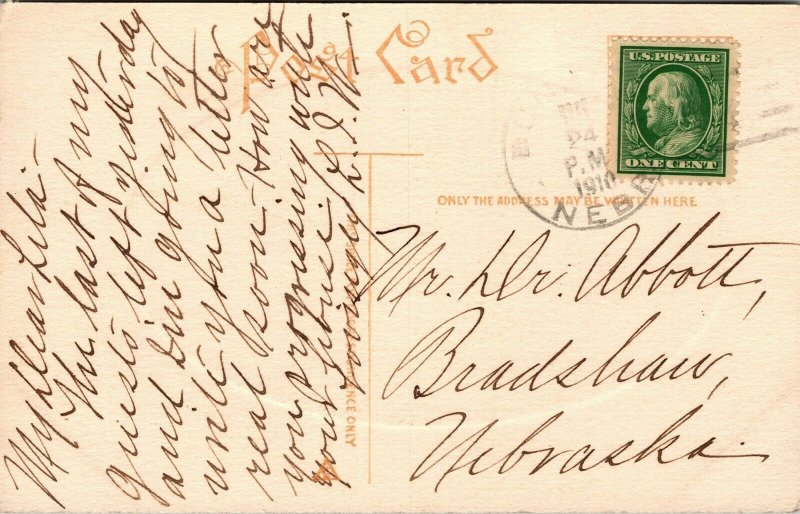 Post Card
U.S. POSTAGE
ONE CENT
24
P.M.
1910
NEBR
ONLY THE ADDRESS MAY BE WRITTEN HERE
ONCE ONLY
Mr. Dr. Abbott,
Bradshaw,
Nebraska.
My Dear Lila-
The last of my
guests left yesterday
and I'm going to
write you a letter
real soon. How are
you progressing with
your house.
Lovingly L. I. W.